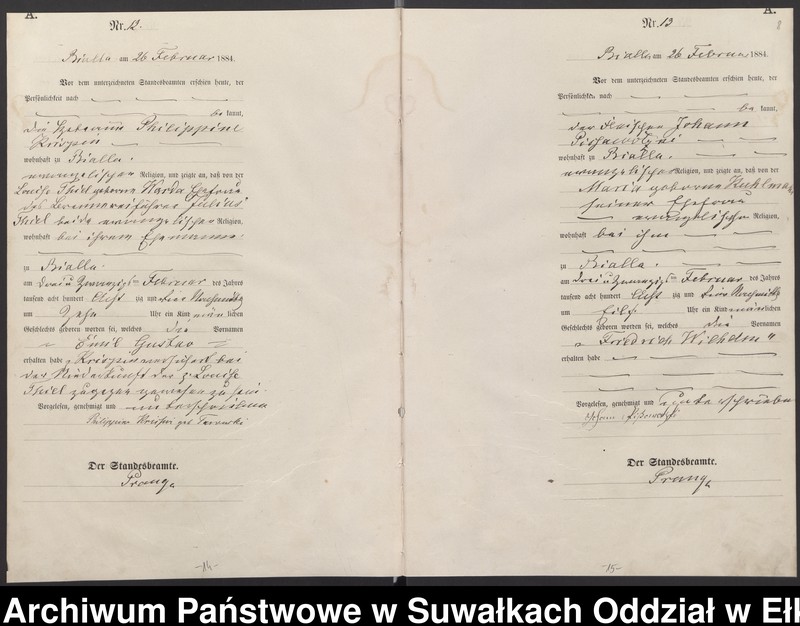 A.
Nr. 12.
Bialla am 26 Februar 1884.
Vor dem unterzeichneten Standesbeamten erschien heute, der
Persönlichkeit nach
be kannt,
die Hebamme Philippine
Krispin
wohnhaft zu Bialla.
evangelischer Religion, und zeigte an, daß von der
Louise Thiel geborene Warda Ehefrau
des Brennereiführer Julius
Thiel beide evangelischer Religion,
wohnhaft bei ihrem Ehemanne
zu Bialla.
am drei u zwanzigsten Februar des Jahres
tausend acht hundert Acht zig und vier Nachmittag
um Zehn Uhr ein Kind männlichen
Geschlechts geboren worden sei, welches die Vornamen
Emil Gustav
erhalten habe. Krispin versichert bei
der Niederkunft der p. Louise
Thiel zugegen gewesen zu sein.
Vorgelesen, genehmigt und unterschrieben
Philippine Krispin geb.
Der Standesbeamte.
Prang
-14-
A.
8
Nr. 13
Bialla am 26 Februar 1884.
Vor dem unterzeichneten Standesbeamten erschien heute, der
Persönlichkeit nach
be kannt,
der Fleischer Johann
wohnhaft zu Bialla.
evangelischer Religion, und zeigte an, daß von der
Maria geborene Kuhlmann
seiner Ehefrau
evangelischer Religion,
wohnhaft bei ihm
zu Bialla.
am drei u zwanzigsten Februar des Jahres
tausend acht hundert Acht zig und vier Nachmittag
um Eilf Uhr ein Kind männlichen
Geschlechts geboren worden sei, welches die Vornamen
„Friedrich Wilhelm“
erhalten habe
Vorgelesen, genehmigt und unterschrieben
Johann
Der Standesbeamte.
Prang
-15-
Archiwum Państwowe w Suwałkach Oddział w Ełk